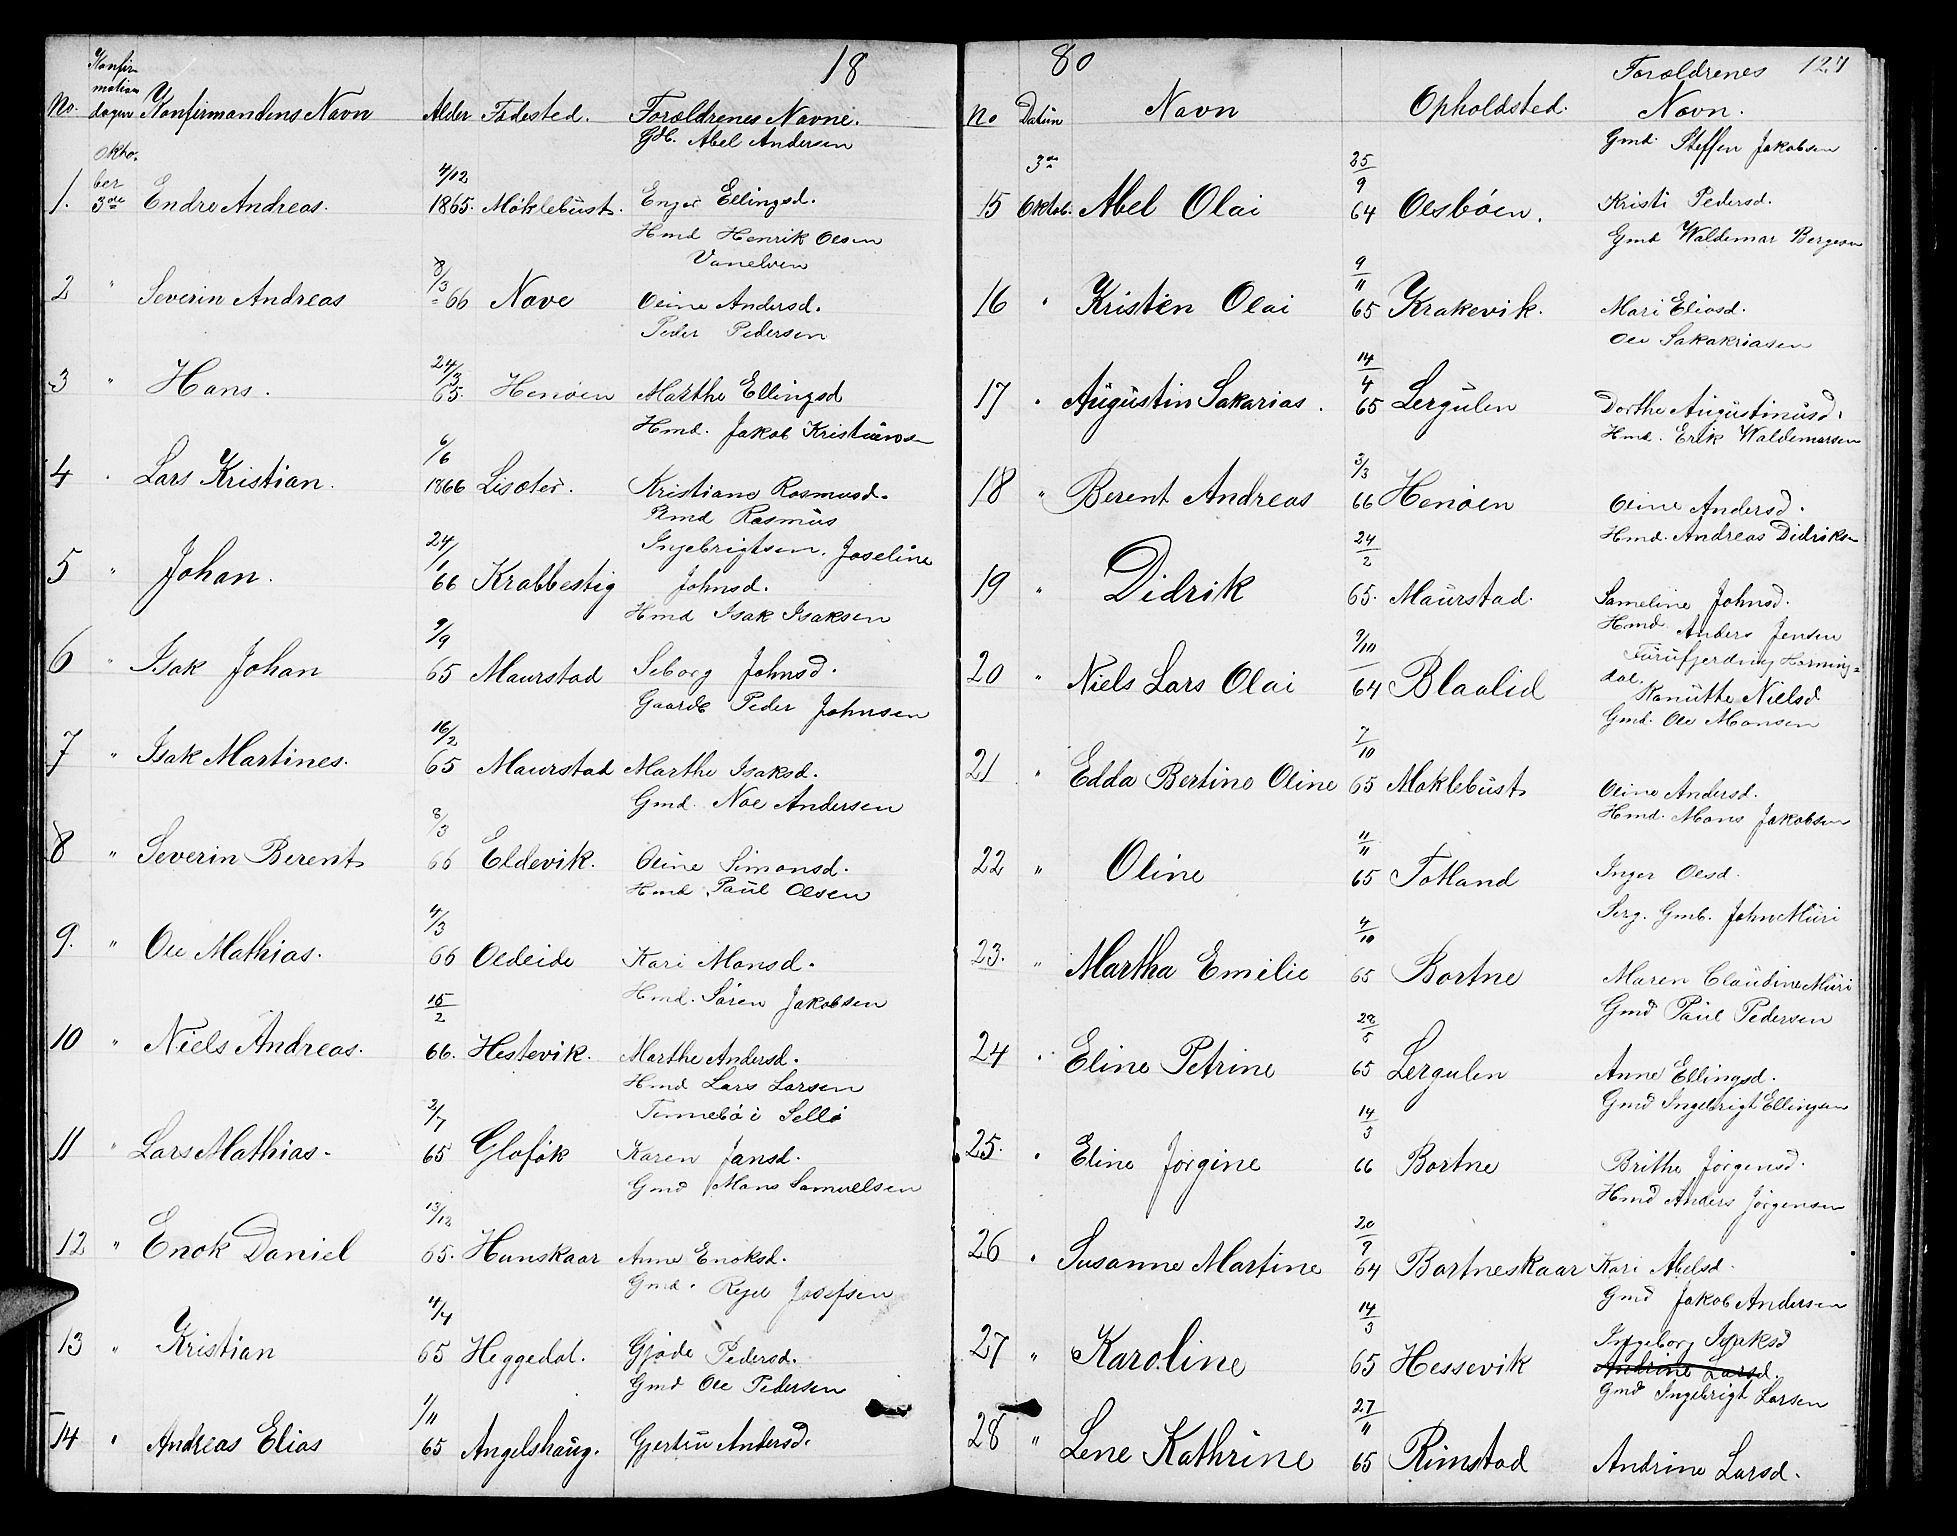 18
Konfir-
mation
No. dagen Konfirmandens Navn Alder Fødested. Forældrenes Navne.
Okto- Abel Andersen
ber 4/12
1. 3de Endre Andreas. 1865. Møklebust. Ellingsd.
Hmd Henrik Olsen
8/3 Vanelven
2 " Severin Andreas " 66 Nave Oline Andersd.
Peder Pedersen
24/3
3 " Hans. 65. Henøen Marthe Ellingsd
Hmd. Jakob Kristiansen
6/6
4 " Lars Kristian. 1866 Lisæter. Kristiane Rasmusd.
Plmd Rasmus
24/1 Ingebrigtsen. Joseline
5 " Johan. 66 Krabbestig Johnsd.
Hmd Isak Isaksen
9/9
6 " Isak Johan 65 Maurstad Seborg Johnsd.
Gaardb Peder Johnsen
16/2
7 " Isak Martines. 65 Maurstad Marthe Isaksd.
Gmd. Noe Andersen
8/3
8 " Severin Berent 66 Eldevik. Oline Simonsd.
Hmd Paul Olsen
4/3
9. " Ole Mathias. 66 Oldeide Kari Monsd.
Hmd. Søren Jakobsen
15/2
10 " Niels Andreas. 66. Hestevik. Marthe Andersd.
Hmd Lars Larsen
2/7 Tennebø i Sellø
11 " Lars Mathias. 65 Glofok Karen Jansd.
Gmd Mons Samuelsen
13/12
12 " Enok Daniel 65. Hunskaar Anne Enoksd.
Gmd. Josefsen
4/4
13 " Kristian 65 Heggedal. Gjøde Pedersd.
Gmd Ole Pedersen
1/11
14 " Andreas Elias 65 Angelshaug. Andersd.
80 127
Forældrenes
No Datum Navn Opholdsted. Navn.
Gmd. Steffen Jakobsen
3de 25/9
15 Oktob. Abel Olai 64 Olsbøen. Kristi Pedersd.
Gmd Waldemar Bergesen
9/11
16 " Kristen Olai 65 Krakevik. Mari Eliasd.
Ole Sakakriasen
14/4
17 " Augustin Sakarias. 65 Lergulen Dorthe Augustinusd.
Hmd. Erik Waldemarsen
3/3
18 " Berent Andreas 66 Henøen Oline Andersd.
Hmd. Andreas Didriksen
24/2
19 " Didrik 65. Maurstad. Sameline Johnsd.
Hmd. Anders Jensen
9/10 Furufjerding Horning-
20 " Niels Lars Olai 64 Blaalid dal. Ranutte Nielsd
Gmd. Ole Monsen
7/10
21 " Edda Bertine Oline 65 Moklebust Oline Andersd.
Hmd. Mons Jakobsen
11/11
22 " Oline 65 Totland Inger Olsd.
Serg. Gmb. John Muri
4/10
23. " Martha Emilie 65 Bortne Maren Claudine Muri
Gmd Paul Pedersen
24 " Eline Petrine 65 Lergulen Anne Ellingsd.
Gmd Ingebrigt Ellingsen
14/3
25. " Eline Jørgine 66 Bortne Brithe Jørgensd.
Hmd Anders Jørgensen
20/9
26 " Susanne Martine 64 Bortneskaar Kari Abelsd.
Gmd Jakob Andersen
14/3 Ingeborg
27 " Karoline 65 Hessevik Andrine Larsd.
Gmd Ingebrigt Larsen
27/11
28 " Lene Kathrine 65 Rimstad Andrine Larsd.